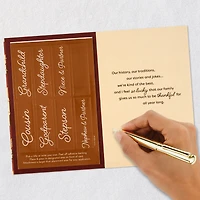 Grandchild
Stepdaughter
Niece & Partner
Cousin
Godparent
Stepson
Nephew & Partner
Our history, our traditions,
our stories and jokes...
we're kind of the best,
and I feel so lucky that our family
gives us so much to be thankful for
all year long.